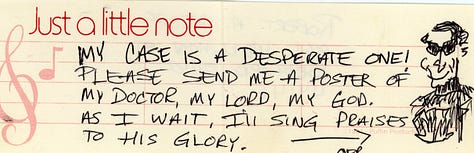 Just a little note
MY CASE IS A DESPERATE ONE!
PLEASE SEND ME A POSTER OF
MY DOCTOR, MY LORD, MY GOD.
AS I WAIT, I'll SING PRAISES
TO HIS GLORY.